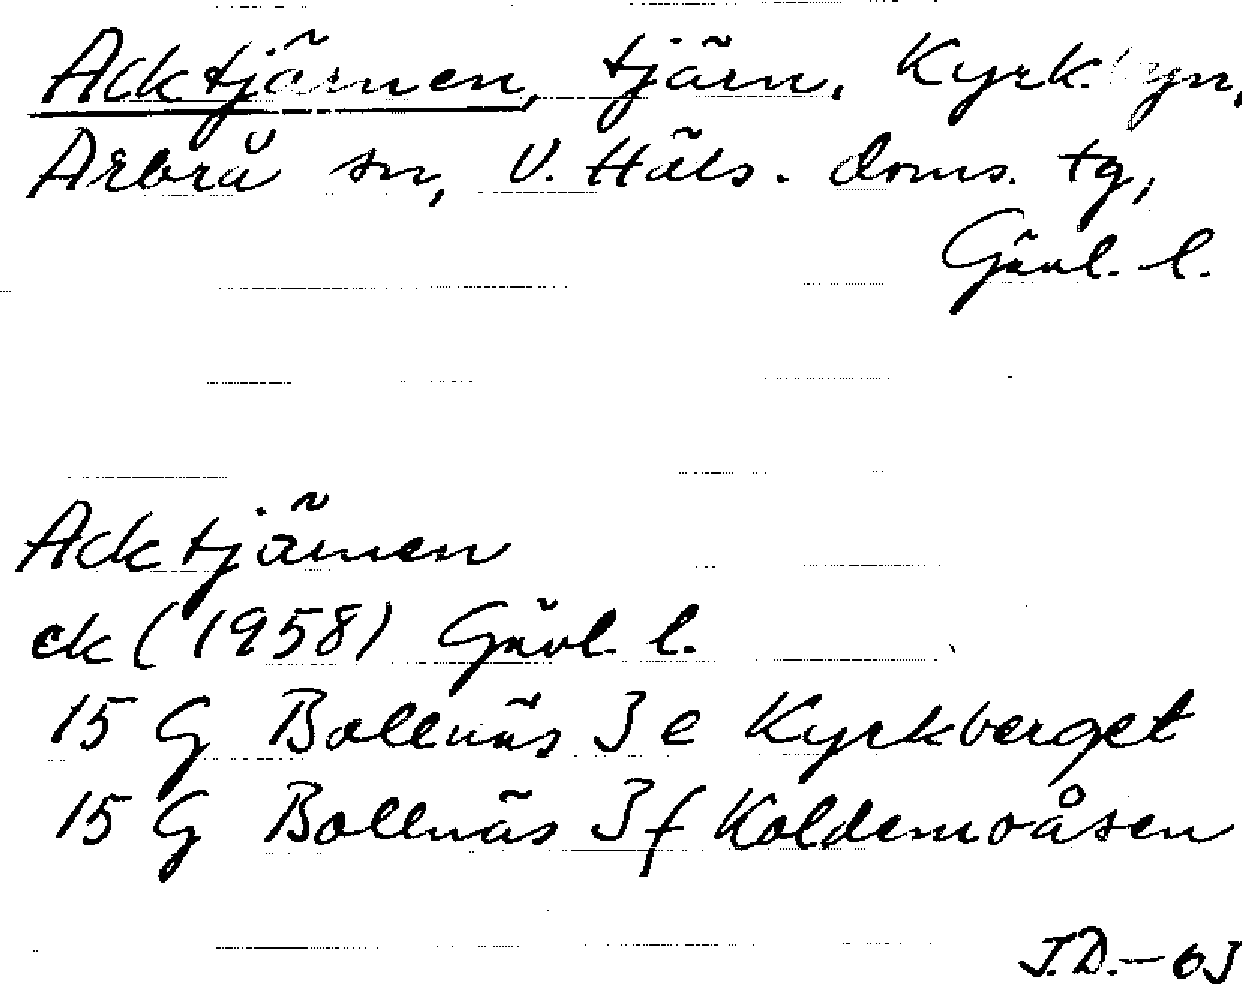 Acktjärnen, tjärn, Kyrkbyn,
Arbrå sn, V. Häls. doms. tg,
Gävl. l.
Acktjärnen
ek (1958) Gävl. l.
15 G Bollnäs 3 e Kyrkberget
15 G Bollnäs 3 f Koldemoåsen
J.D. – 63